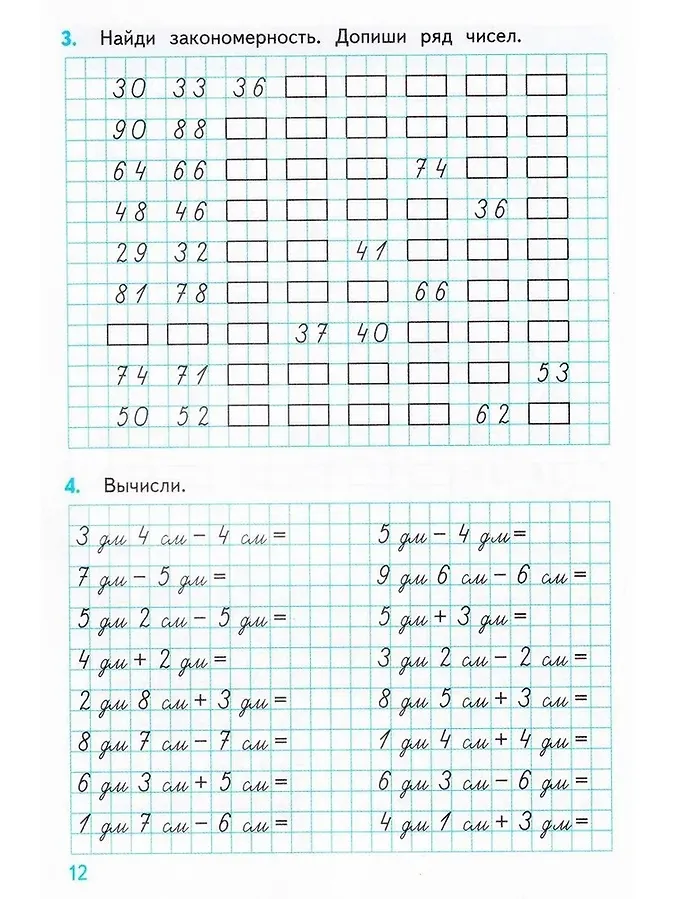 3. Найди закономерность. Допиши ряд чисел.
30 33 36
90 88
64 66 74
48 46 36
29 32 41
81 78 66
37 40
74 71 53
50 52 62
4. Вычисли.
3 дм 4 см – 4 см =
7 дм – 5 дм =
5 дм 2 см – 5 дм =
4 дм + 2 дм =
2 дм 8 см + 3 дм =
8 дм 7 см – 7 см =
6 дм 3 см + 5 см =
1 дм 7 см – 6 см =
5 дм – 4 дм =
9 дм 6 см – 6 см =
5 дм + 3 дм =
3 дм 2 см – 2 см =
8 дм 5 см + 3 см =
1 дм 4 см + 4 дм =
6 дм 3 см – 6 дм =
4 дм 1 см + 3 дм =
12